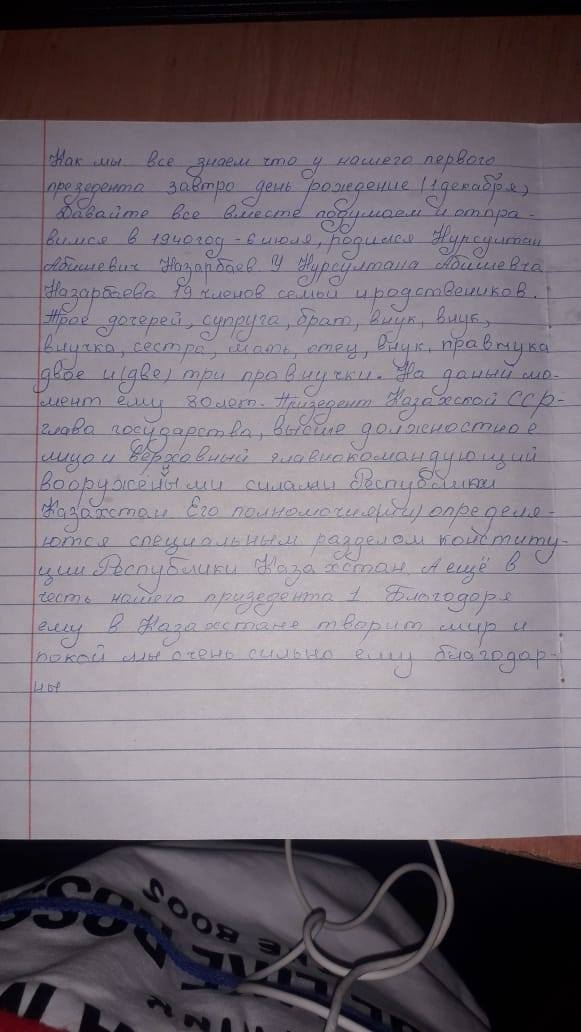 Как мы все знаем что у нашего первого
презедента завтро день рождение (1 декабря)
Давайте все вместе подумаем и отпра-
вимся в 1940 год - 6 июля, родился Нурсултан
Абишевич Назарбаев. У Нурсултана Абишевча
Назарбаева 19 членов семьи и родствеников.
Трое дочерей, супруга, брат, внук, внук,
внучка, сестра, мать, отец, внук, правнука
двое и (две) три правнучки. На даный мо-
мент ему 80 лет. Призедент Казахской ССР-
глава государства, высше должностное
лицо и верховный главнокомандующий
вооружёнными силами Республики
Казахстан. Его полномочия определя-
ются специальным разделом конститу-
ции Республики Казахстан. А ещё в
честь нашего призедента 1. Благодоря
ему в Казахстане творит мир и
покой мы очень сильно ему благодар-
ны
2008
BOOS